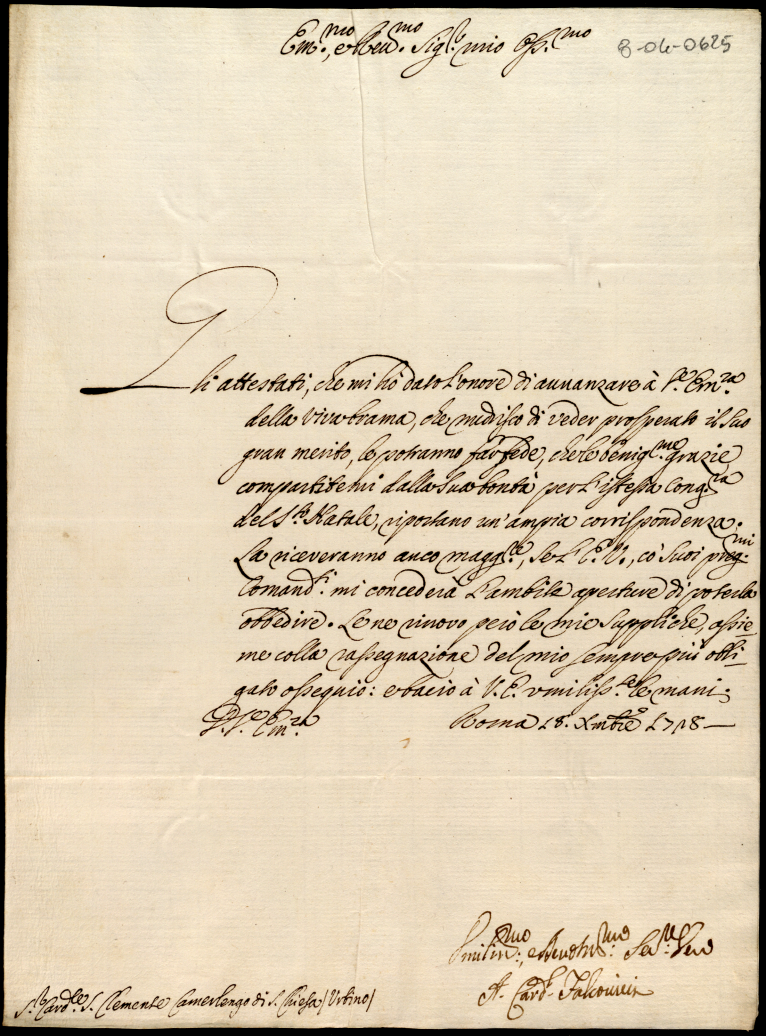 Em.mo, e Reu.mo Sig.r mio Oss.mo
8-04-0625
Gli attestati, che mi hò dato l'onore di auuanzare à V.ra Em.za
della viva brama, che nudrisco di veder prosperato il suo
gran merito, le potranno far fede, che le benig.me grazie
compartitemi dalla sua bontà per l'istessa Cong.ra
del S.to Natale, riportano un'ampia corrispondenza.
La riceveranno anco magg.re, se l'E. V., co' suoi preg.mi
Comand.i mi concederà l'ambite aperture di poterla
obbedire. Le ne rinovo però le mie suppliche, assie-
me colla rassegnazione del mio sempre più obbli-
gato ossequio: e bacio à V. E. vmiliss.te le mani.
D. V. Em.za Roma 18. Xmbre 1718
Vmilis.mo, e Deuotis.mo Ser.re Vero
A. Card.
S.r Card.le S. Clemente Camerlengo di S. Chiesa (Urbino)